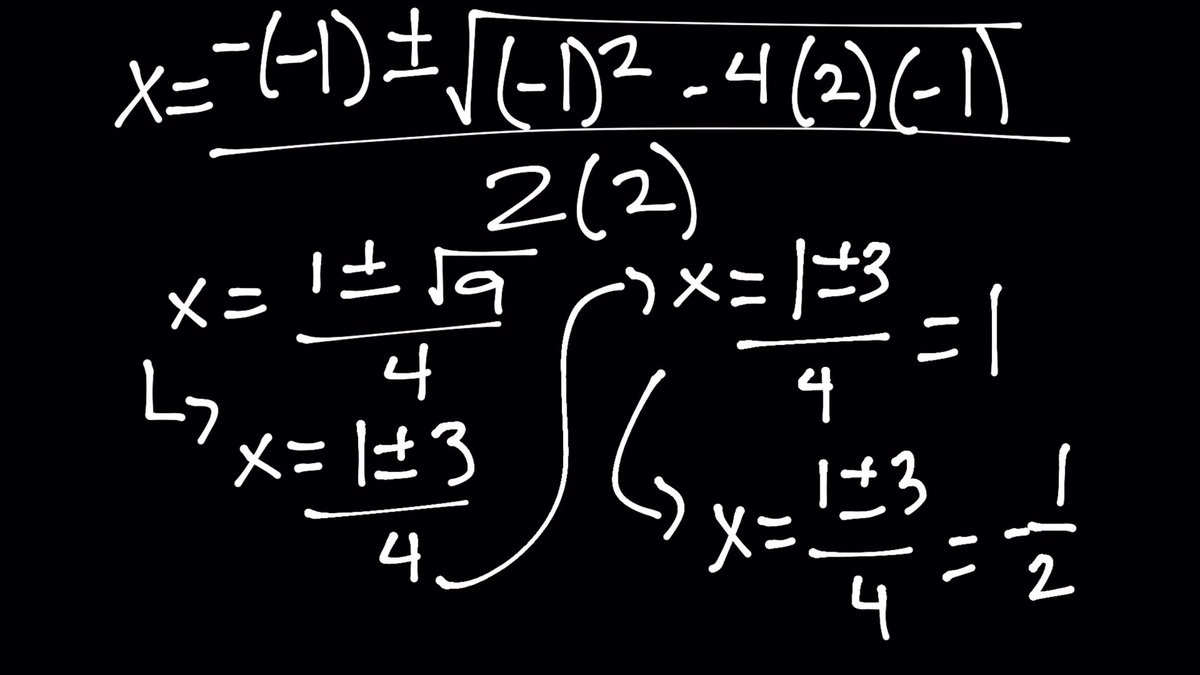 x = -(-1) ± √((-1)² - 4(2)(-1)) / 2(2)
x = 1 ± √9 / 4
↳ x = 1 ± 3 / 4
→ x = 1 ± 3 / 4 = 1
↳ x = 1 ± 3 / 4 = -1/2